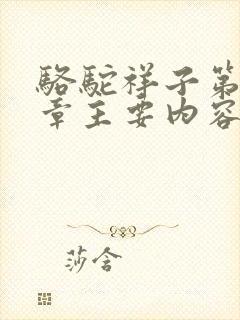 骆驼祥子第
章主要内容
莎舍